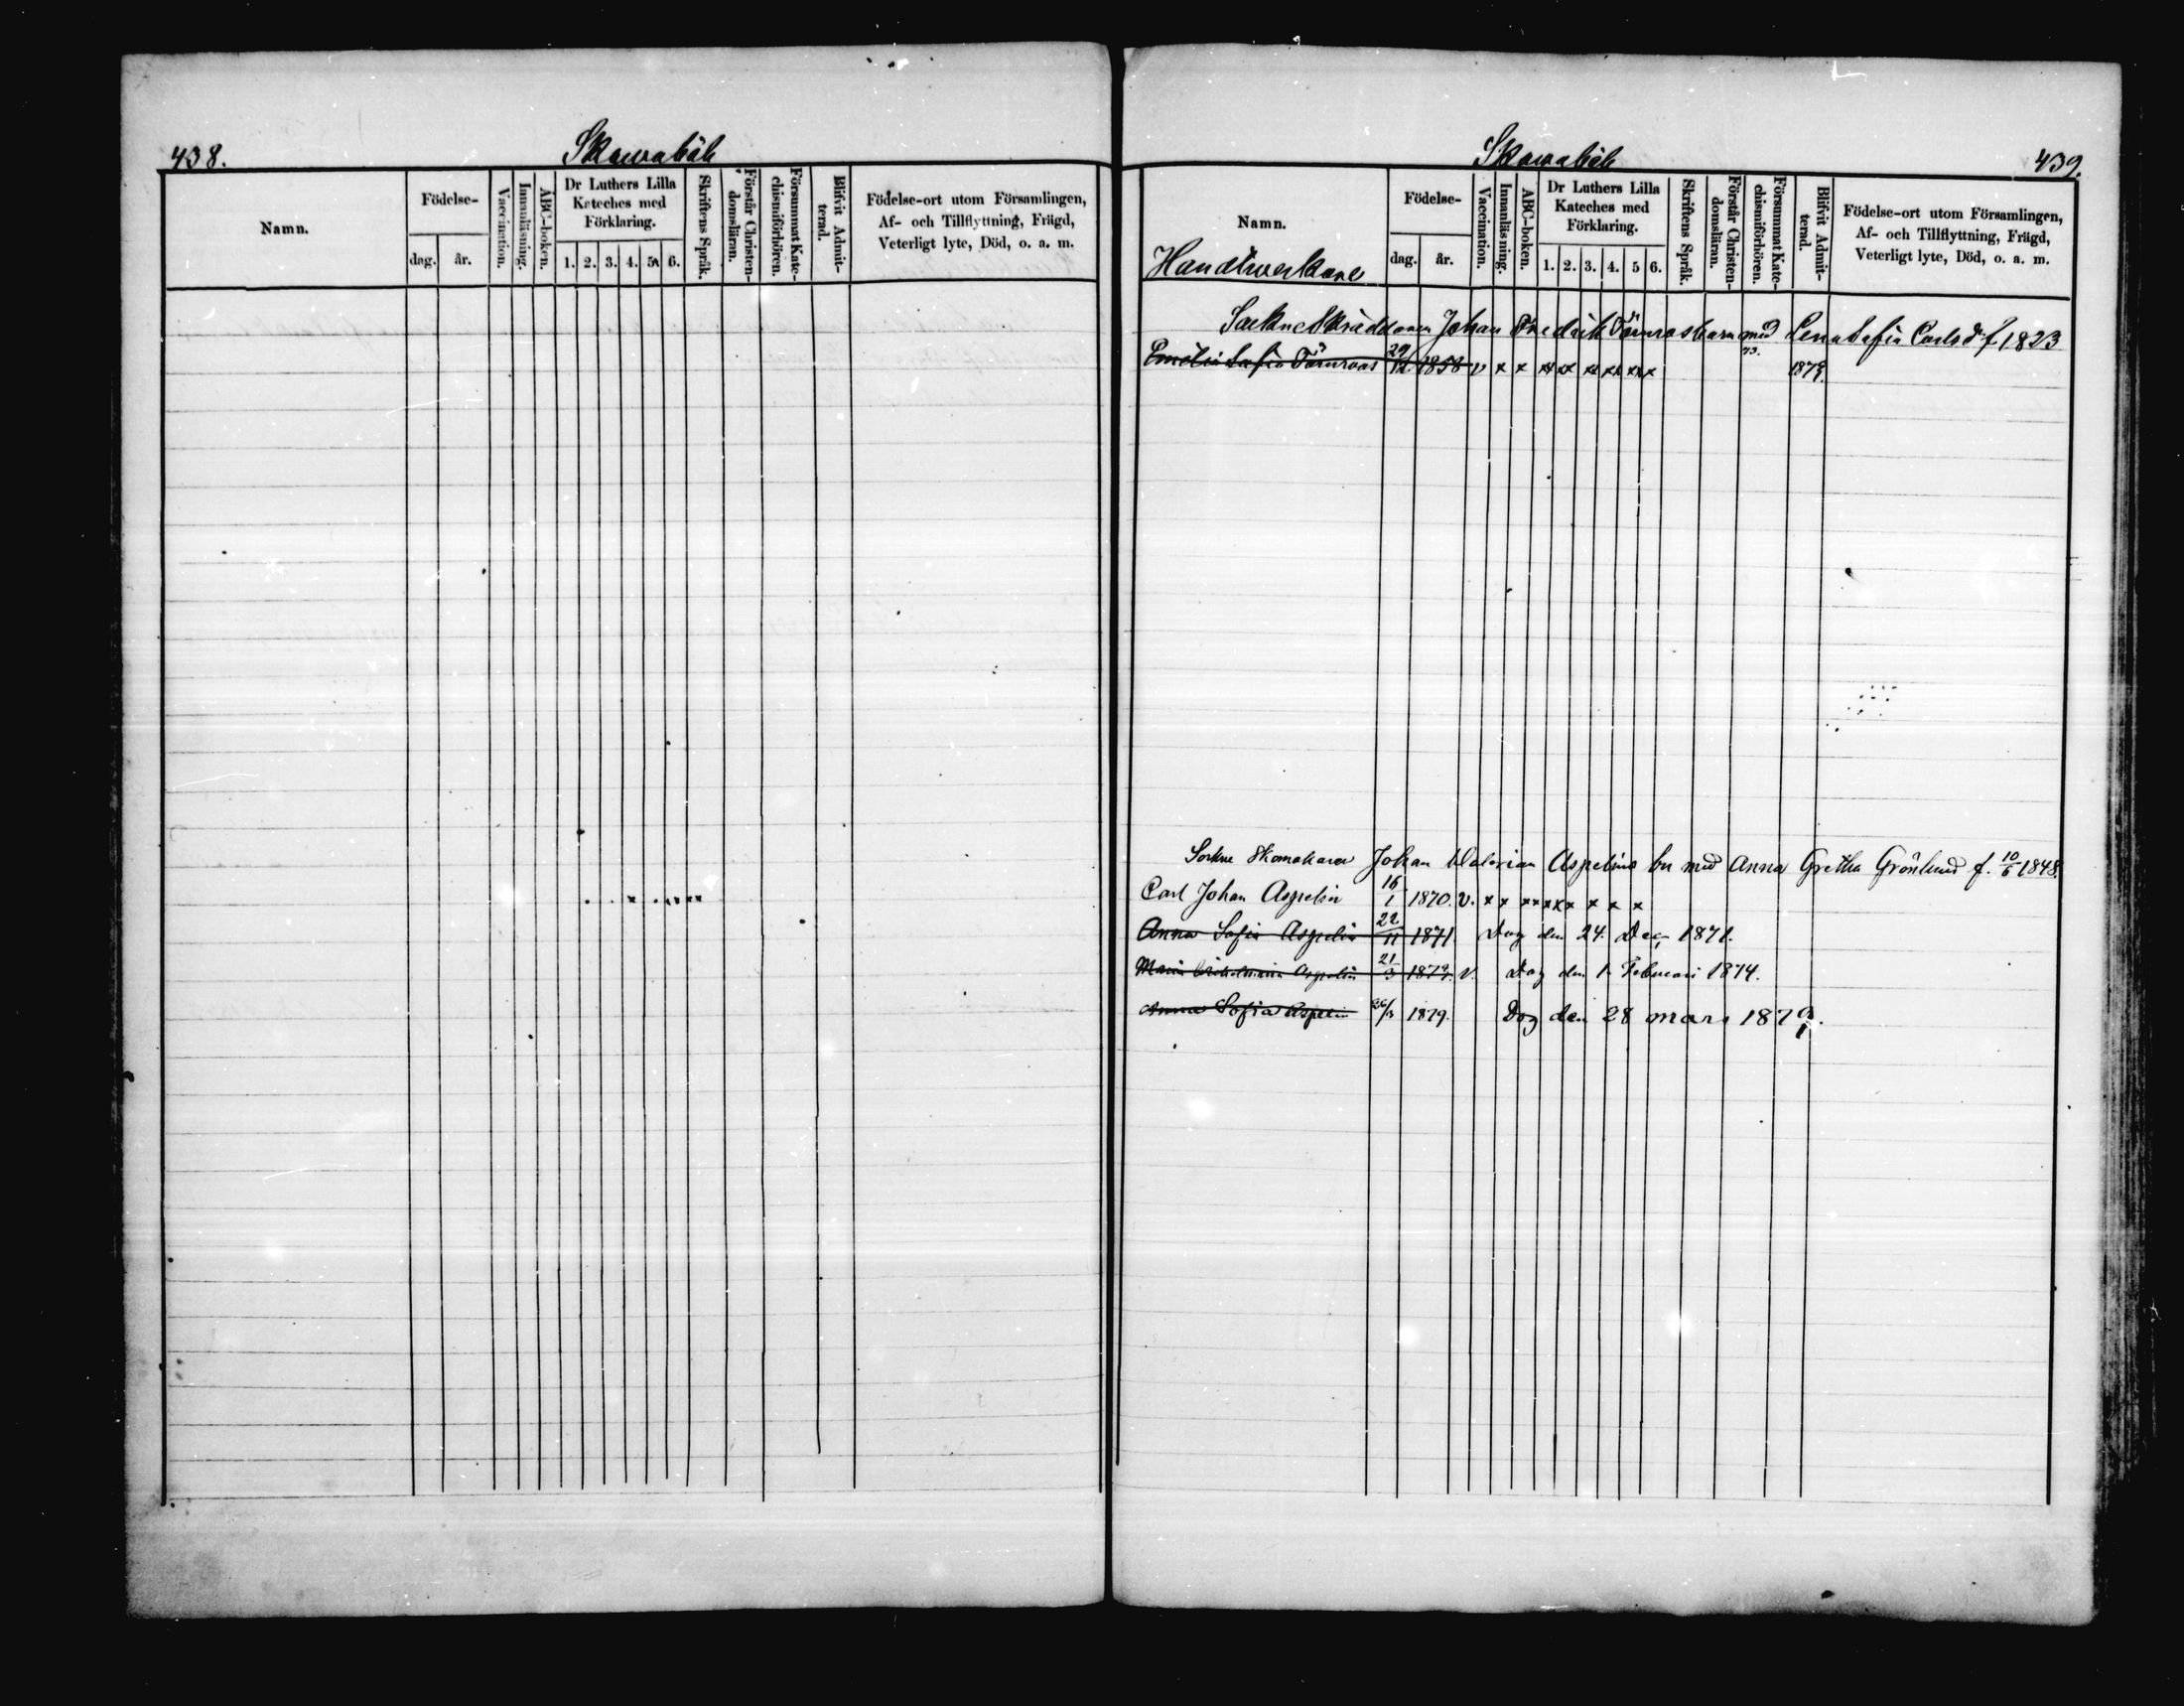 438. Skawabäle
Namn.
Födelse-
dag. år.
Vaccination.
Innanläsning.
ABC-boken.
Dr Luthers Lilla
Kateches med
Förklaring.
1. 2. 3. 4. 5 6.
Skriftens Språk.
Förstår Christen-
domsläran.
Försummat Kate-
chismiförhören.
Blifvit Admit-
terad.
Födelse-ort utom Församlingen,
Af- och Tillflyttning, Frägd,
Veterligt lyte, Död, o. a. m.
Skawabäle 439.
Namn.
Handtwerkare
Födelse-
dag. år.
Vaccination.
Innanläsning.
ABC-boken.
Dr Luthers Lilla
Kateches med
Förklaring.
1. 2. 3. 4. 5 6.
Skriftens Språk.
Förstår Christen-
domsläran.
Försummat Kate-
chismiförhören.
Blifvit Admit-
terad.
Födelse-ort utom Församlingen,
Af- och Tillflyttning, Frägd,
Veterligt lyte, Död, o. a. m.
Sockne Skräddaren Johan Fredrik Törnroos barn med Lena Sofia Carlsd. f 1823
Emelia Sofia Törnroos 29/12 1858 v x x xx xx xx xx xx x 73. 1879.
Sockne Skomakaren Johan Walerian Aspelins bn med Anna Gretha Grönlund f. 10/6 1848.
Carl Johan Aspelin 16/1 1870. v. x x xx xxx x x x
Anna Sofia Aspelin 22/11 1871. Dog den 24 Dec. 1871.
Maria Wilhelmina Aspelin 21/3 1873. v. Dog den 1 Februari 1874.
Anna Sofia Aspelin 26/3 1879. Dog den 28 mars 1879.